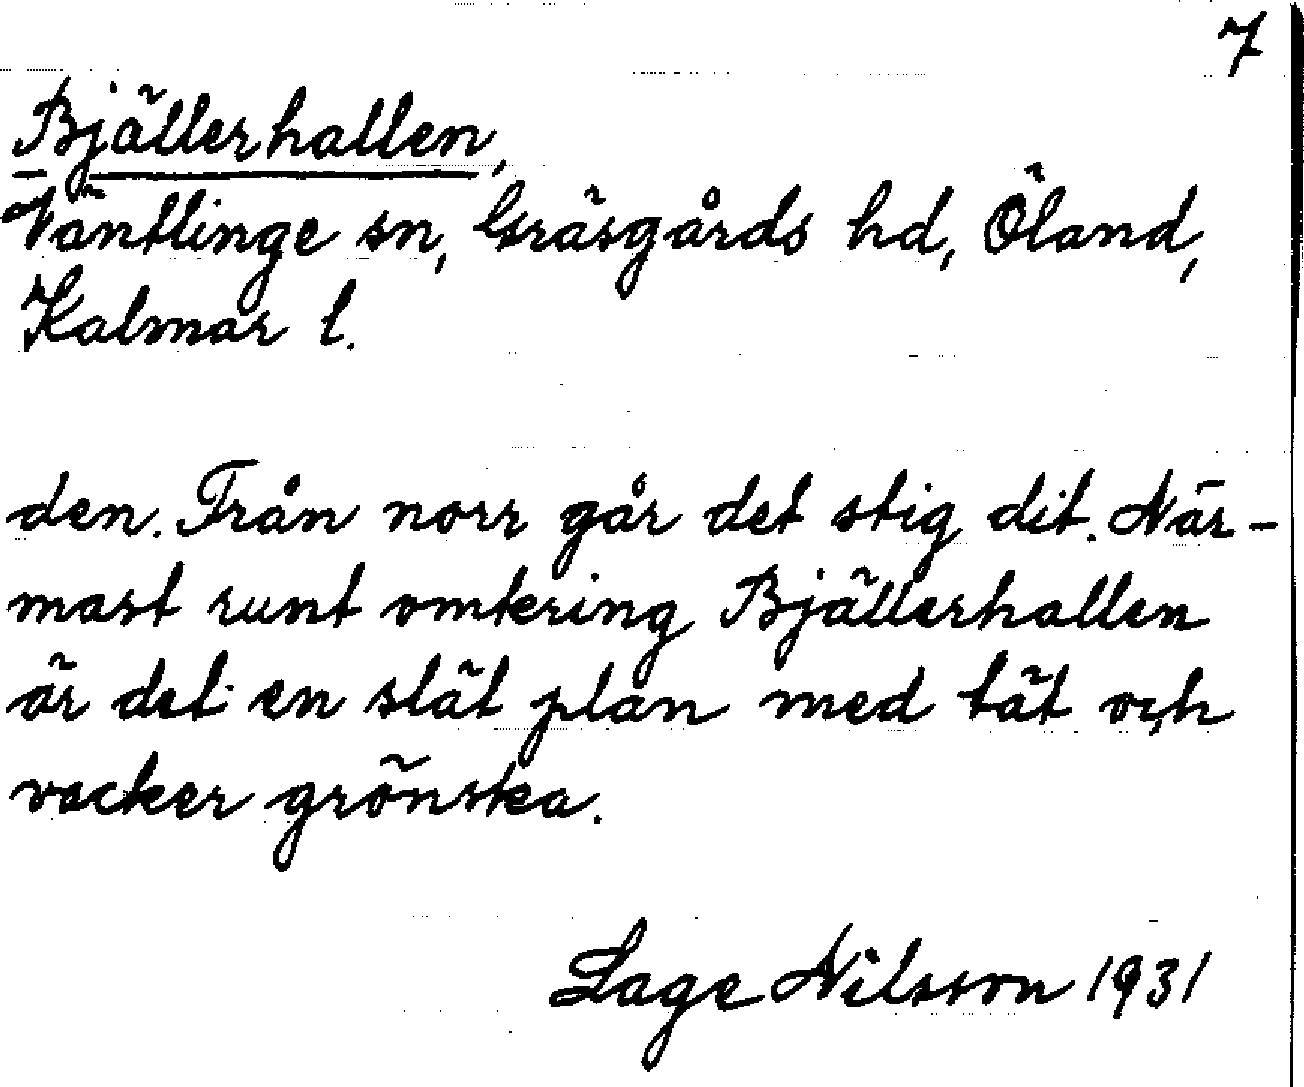 7
Bjällerhallen,
Väntlinge sn, Gräsgårds hd, Öland,
Kalmar l.
den. Från norr går det stig dit. När-
mast runt omkring Bjällerhallen
är det en slät plan med tät och
vacker grönska.
Lage Nilsson 1931